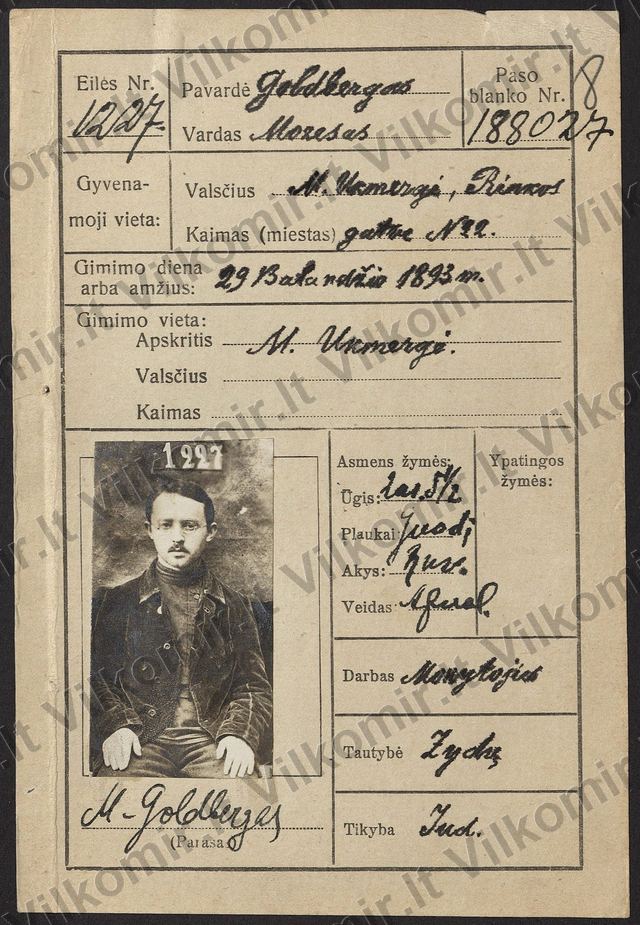 Eilės Nr.
12/27.
Pavardė Goldbergas
Vardas Mozesas
Paso
blanko Nr.
188027
8
Gyvena-
moji vieta:
Valsčius M. Ukmergė, Rinkos
Kaimas (miestas) gatvė N22.
Gimimo diena
arba amžius: 29 Balandžio 1893 m.
Gimimo vieta:
Apskritis M. Ukmergė.
Valsčius
Kaimas
1227
Asmens žymės:
Ūgis: 2 ar. 5 1/2
Plaukai Juodi
Akys:
Veidas
Ypatingos
žymės:
Darbas Mokytojas
Tautybė Žydų
Tikyba Jud.
M-Goldbergas
(Parašas)
Vilkomir.lt